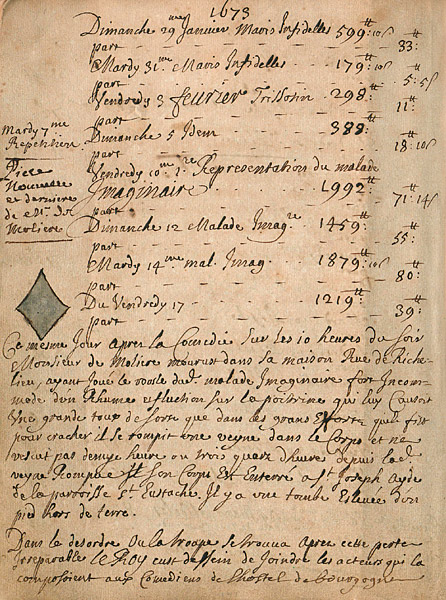 1673
Dimanche 29me Janvier Maris Infidelles 599tt:10s
part — — — 33:tt
Mardy 31me Maris Infidelles. 179tt:10s
part — — — 5tt:5s
Vendredy 3 feurier Trissotin 298:tt
part — — — 11:tt
Mardy 7me
Repetition.
Dimanche 5 Idem — — 388:tt
part — — — 18tt:10s
Piece
Nouuelle
et derniere
de Mr. de
Moliere
Vendredy 10. 1re Representation du malade
Imaginaire — — 1992:tt
part — — — 71tt:14s
Dimanche 12 Malade Imagre 1459:tt
part — — — 55:tt
Mardy 14me mal. Imag. 1879tt:10s
part — — — 80:tt
Du Vendredy 17 — — 1219:tt
part — — — 39:tt
Ce mesme Jour apres la Comedie Sur les 10 heures du soir
Monsieur de Moliere mourust dans sa maison Rue de Riche-
lieu, ayant Joué le roole dud. malade Imaginaire fort Incom-
modé d'un Rhume et fluction sur la poitrine qui luy Causoit
Vne grande toux de sorte que dans les grans Efforts qu'il fist
pour cracher il se rompit vne veyne dans le Corps et ne
vescut pas demye heure ou trois quarz d'heure depuis lad.
veyne Rompüe. Son Corps Est Enterré a St Joseph Ayde
de la parroisse St Eustache. Il y a vne tombe Esleuée d'vn
pied hors de terre.
Dans le desordre Ou la troupe se trouua Apres cette perte
Irreparable le Roy eust dessein de Joindre les acteurs qui la
composoient aux Comediens de l'hostel de bourgogne